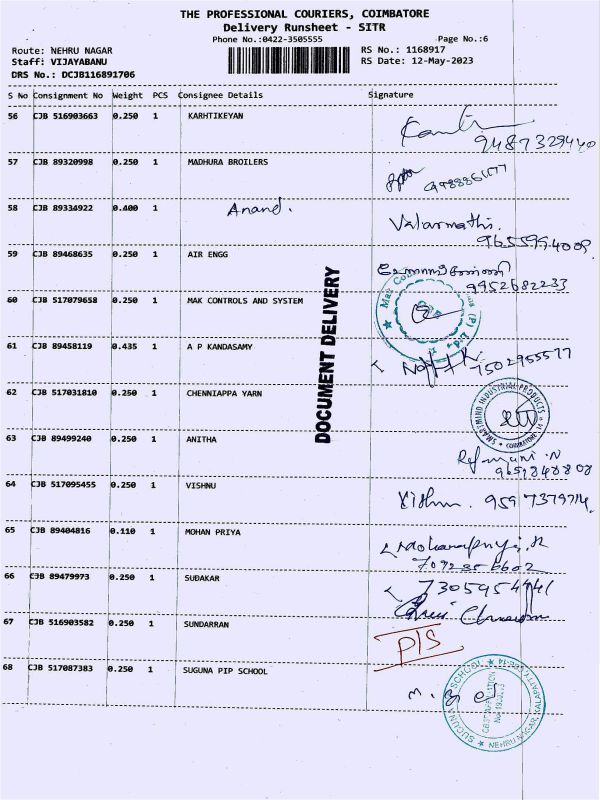 THE PROFESSIONAL COURIERS, COIMBATORE
Delivery Runsheet - SITR
Phone No.:0422-3505555 Page No.:6
Route: NEHRU NAGAR RS No.: 1168917
Staff: VIJAYABANU RS Date: 12-May-2023
DRS No.: DCJB116891706
S No Consignment No Weight PCS Consignee Details Signature
56 CJB 516903663 0.250 1 KARHTIKEYAN
9487329440
57 CJB 89320998 0.250 1 MADHURA BROILERS
58 CJB 89334922 0.400 1 Anand. Valarmathi.
9655994009.
59 CJB 89468635 0.250 1 AIR ENGG
9952682233
60 CJB 517079658 0.250 1 MAK CONTROLS AND SYSTEM
DOCUMENT DELIVERY
61 CJB 89458119 0.435 1 A P KANDASAMY
7502955577
62 CJB 517031810 0.250 1 CHENNIAPPA YARN
SMARTMIND INDUSTRIAL PRODUCTS
COIMBATORE
63 CJB 89499240 0.250 1 ANITHA
64 CJB 517095455 0.250 1 VISHNU Vishnu. 9597379714.
65 CJB 89404816 0.110 1 MOHAN PRIYA
66 CJB 89479973 0.250 1 SUDAKAR
67 CJB 516903582 0.250 1 SUNDARRAN
P/S
68 CJB 517087383 0.250 1 SUGUNA PIP SCHOOL
SUGUNA PIP SCHOOL
NEHRU NAGAR, KALAPATTY